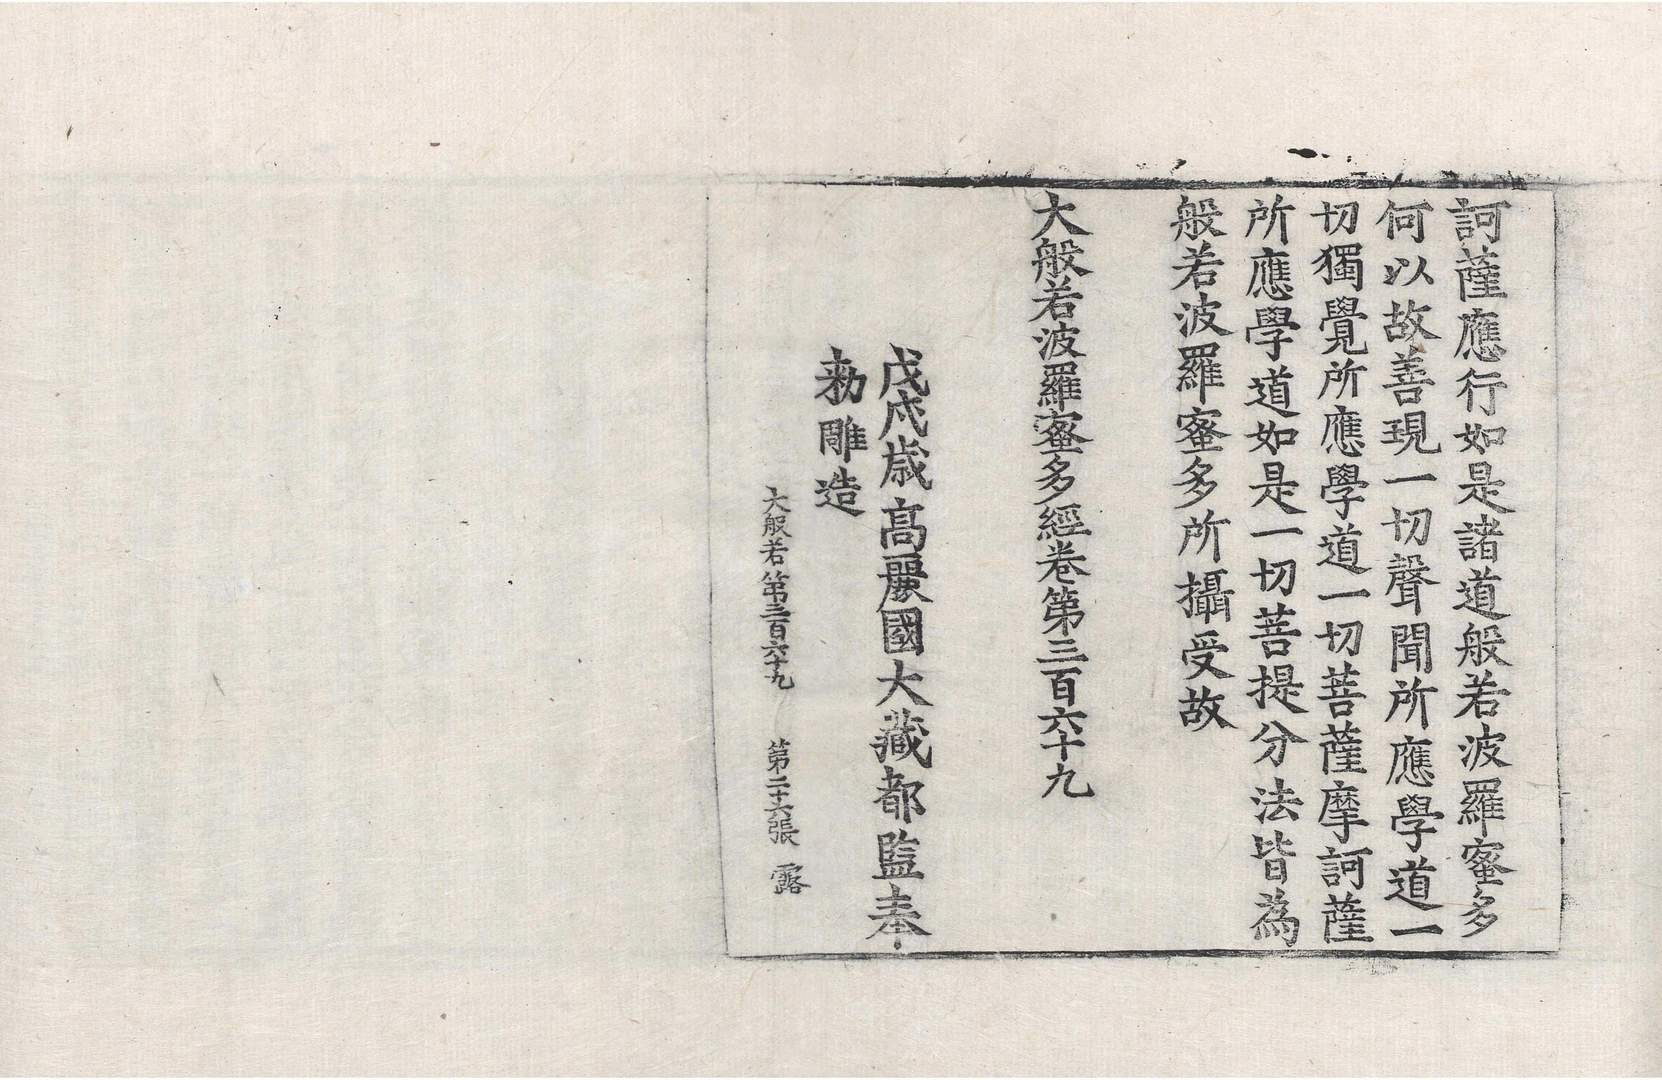 訶薩應行如是諸道般若波羅蜜多
何以故善現一切聲聞所應學道一
切獨覺所應學道一切菩薩摩訶薩
所應學道如是一切菩提分法皆為
般若波羅蜜多所攝受故
大般若波羅蜜多經卷第三百六十九
戊戌歲高麗國大藏都監奉
勅雕造
大般若第三百六十九 第二十六張 露